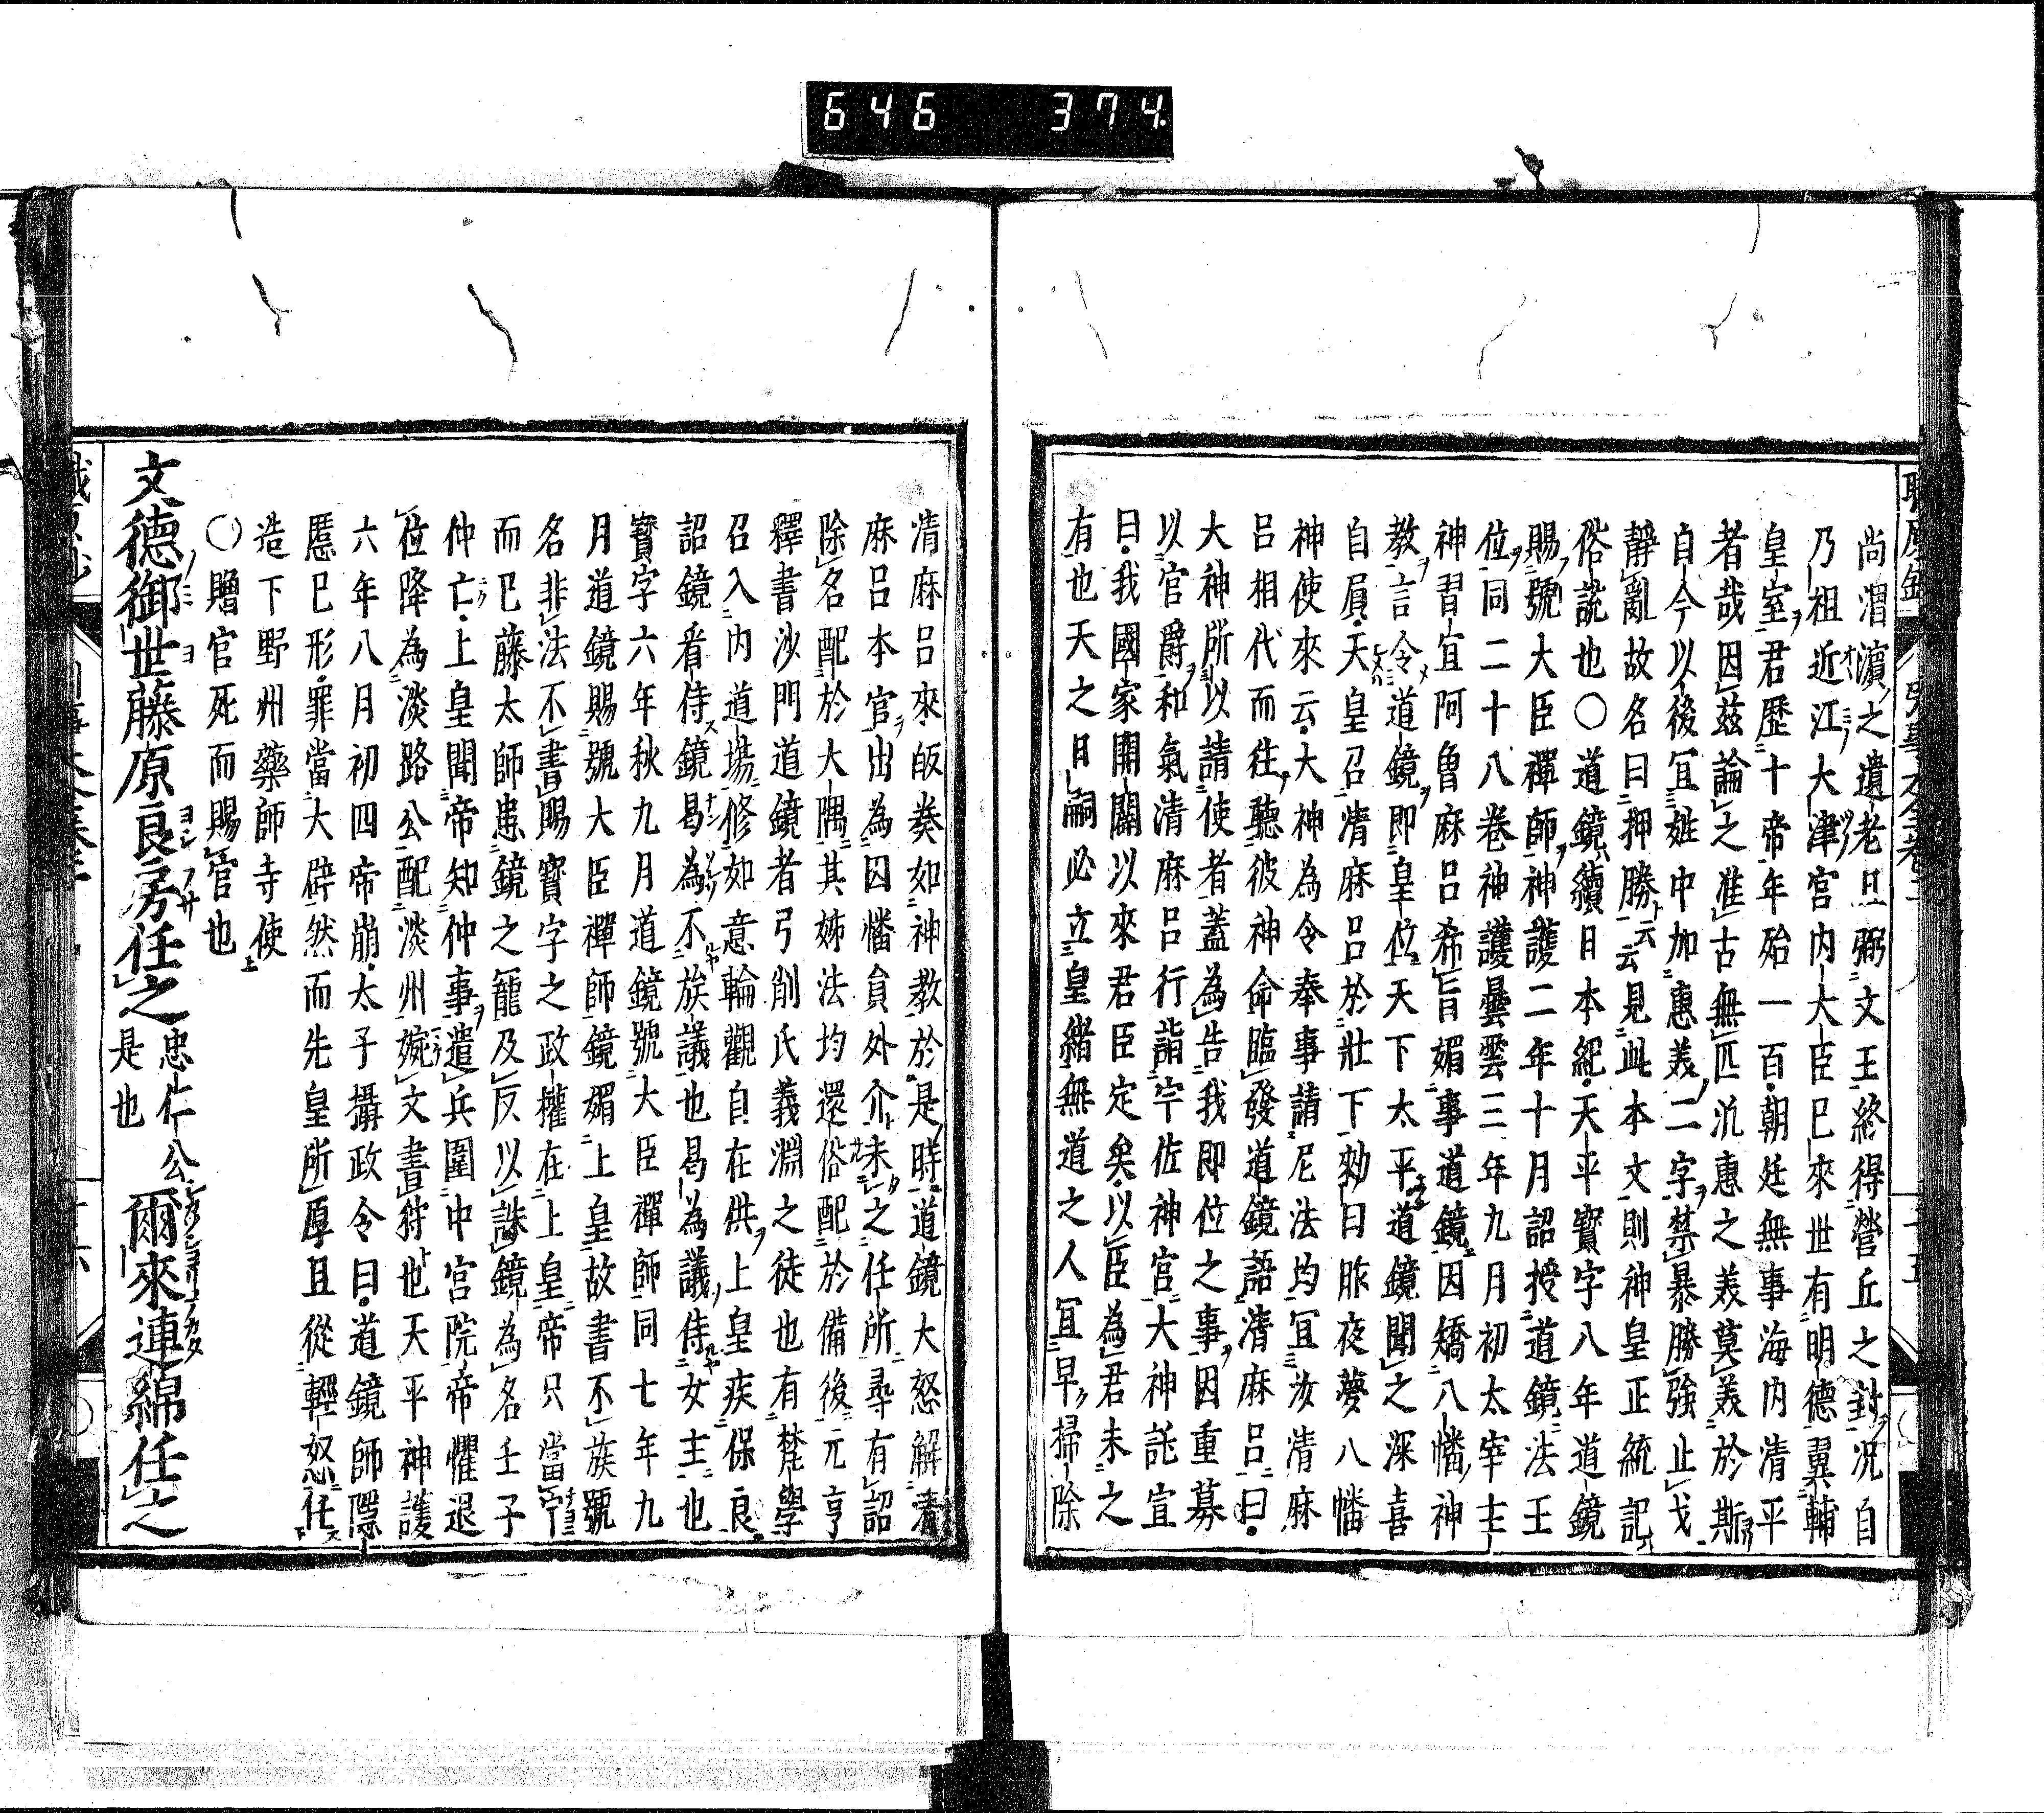 646 374
尚渭濵之遺老且弼文王終得營丘之封況自
乃祖近江大津宮内大臣已來世有明德翼輔
皇室君歷十帝年殆一百朝廷無事海内清平
者哉因茲論之准古無匹汎惠之美莫美於斯
自今以後冝姓中加惠美二字禁暴勝強止戈
靜亂故名曰押勝云云見此本文則神皇正統記
俗説也〇道鏡續日本紀天平寳字八年道鏡
賜號大臣禪師神護二年十月詔授道鏡法王
位同二十八巻神護曇雲三年九月初太宰主
神習宜阿曽麻呂希旨媚事道鏡因矯八幡神
教言令道鏡即皇位天下太平道鏡聞之深喜
自屓天皇召清麻呂於壯下勑曰昨夜夢八幡
神使來云大神為令奉事請尼法均冝汝清麻
呂相代而徃聽彼神命臨發道鏡語清麻呂曰
大神所以請使者蓋為告我即位之事因重募
以官爵和氣清麻呂行詣宇佐神宮大神託宣
曰我國家開闢以來君臣定矣以臣為君未之
有也天之日嗣必立皇緒無道之人冝早掃除
清麻呂來皈奏如神教於是時道鏡大怒解清
麻呂本官出為因幡員外介未之任所尋有詔
除名配於大隅其姊法均還俗配於備後元亨
釋書沙門道鏡者弓削氏義淵之徒也有梵學
召入内道場修如意輪觀自在供上皇疾保良
詔鏡看侍鏡曷為不族議也曷為議侍女主也
寳字六年秋九月道鏡號大臣禪師同七年九
月道鏡賜號大臣禪師鏡媚上皇故書不族號
名非法不書賜寳字之政權在上皇帝只當宁
而已藤太師恚鏡之寵及反以誅鏡為名壬子
仲亡上皇聞帝知仲事遣兵圍中宮院帝懼退
位降為淡路公配淡州婉文書狩也天平神護
六年八月初四帝崩太子攝政令曰道鏡師隱
慝已形罪當大辟然而先皇所厚且從輕恕任
造下野州藥師寺使
〇贈官死而賜官也
文德御世藤原良房任之忠仁公是也爾來連綿任之